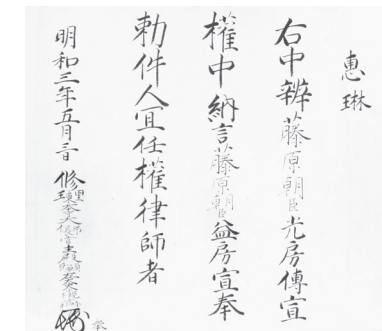 惠琳
右中辨藤原朝臣光房傳宣
權中納言藤原朝臣益房宣奉
勅件人宜任權律師者
明和三年五月三日修理東大寺大佛長官
奉